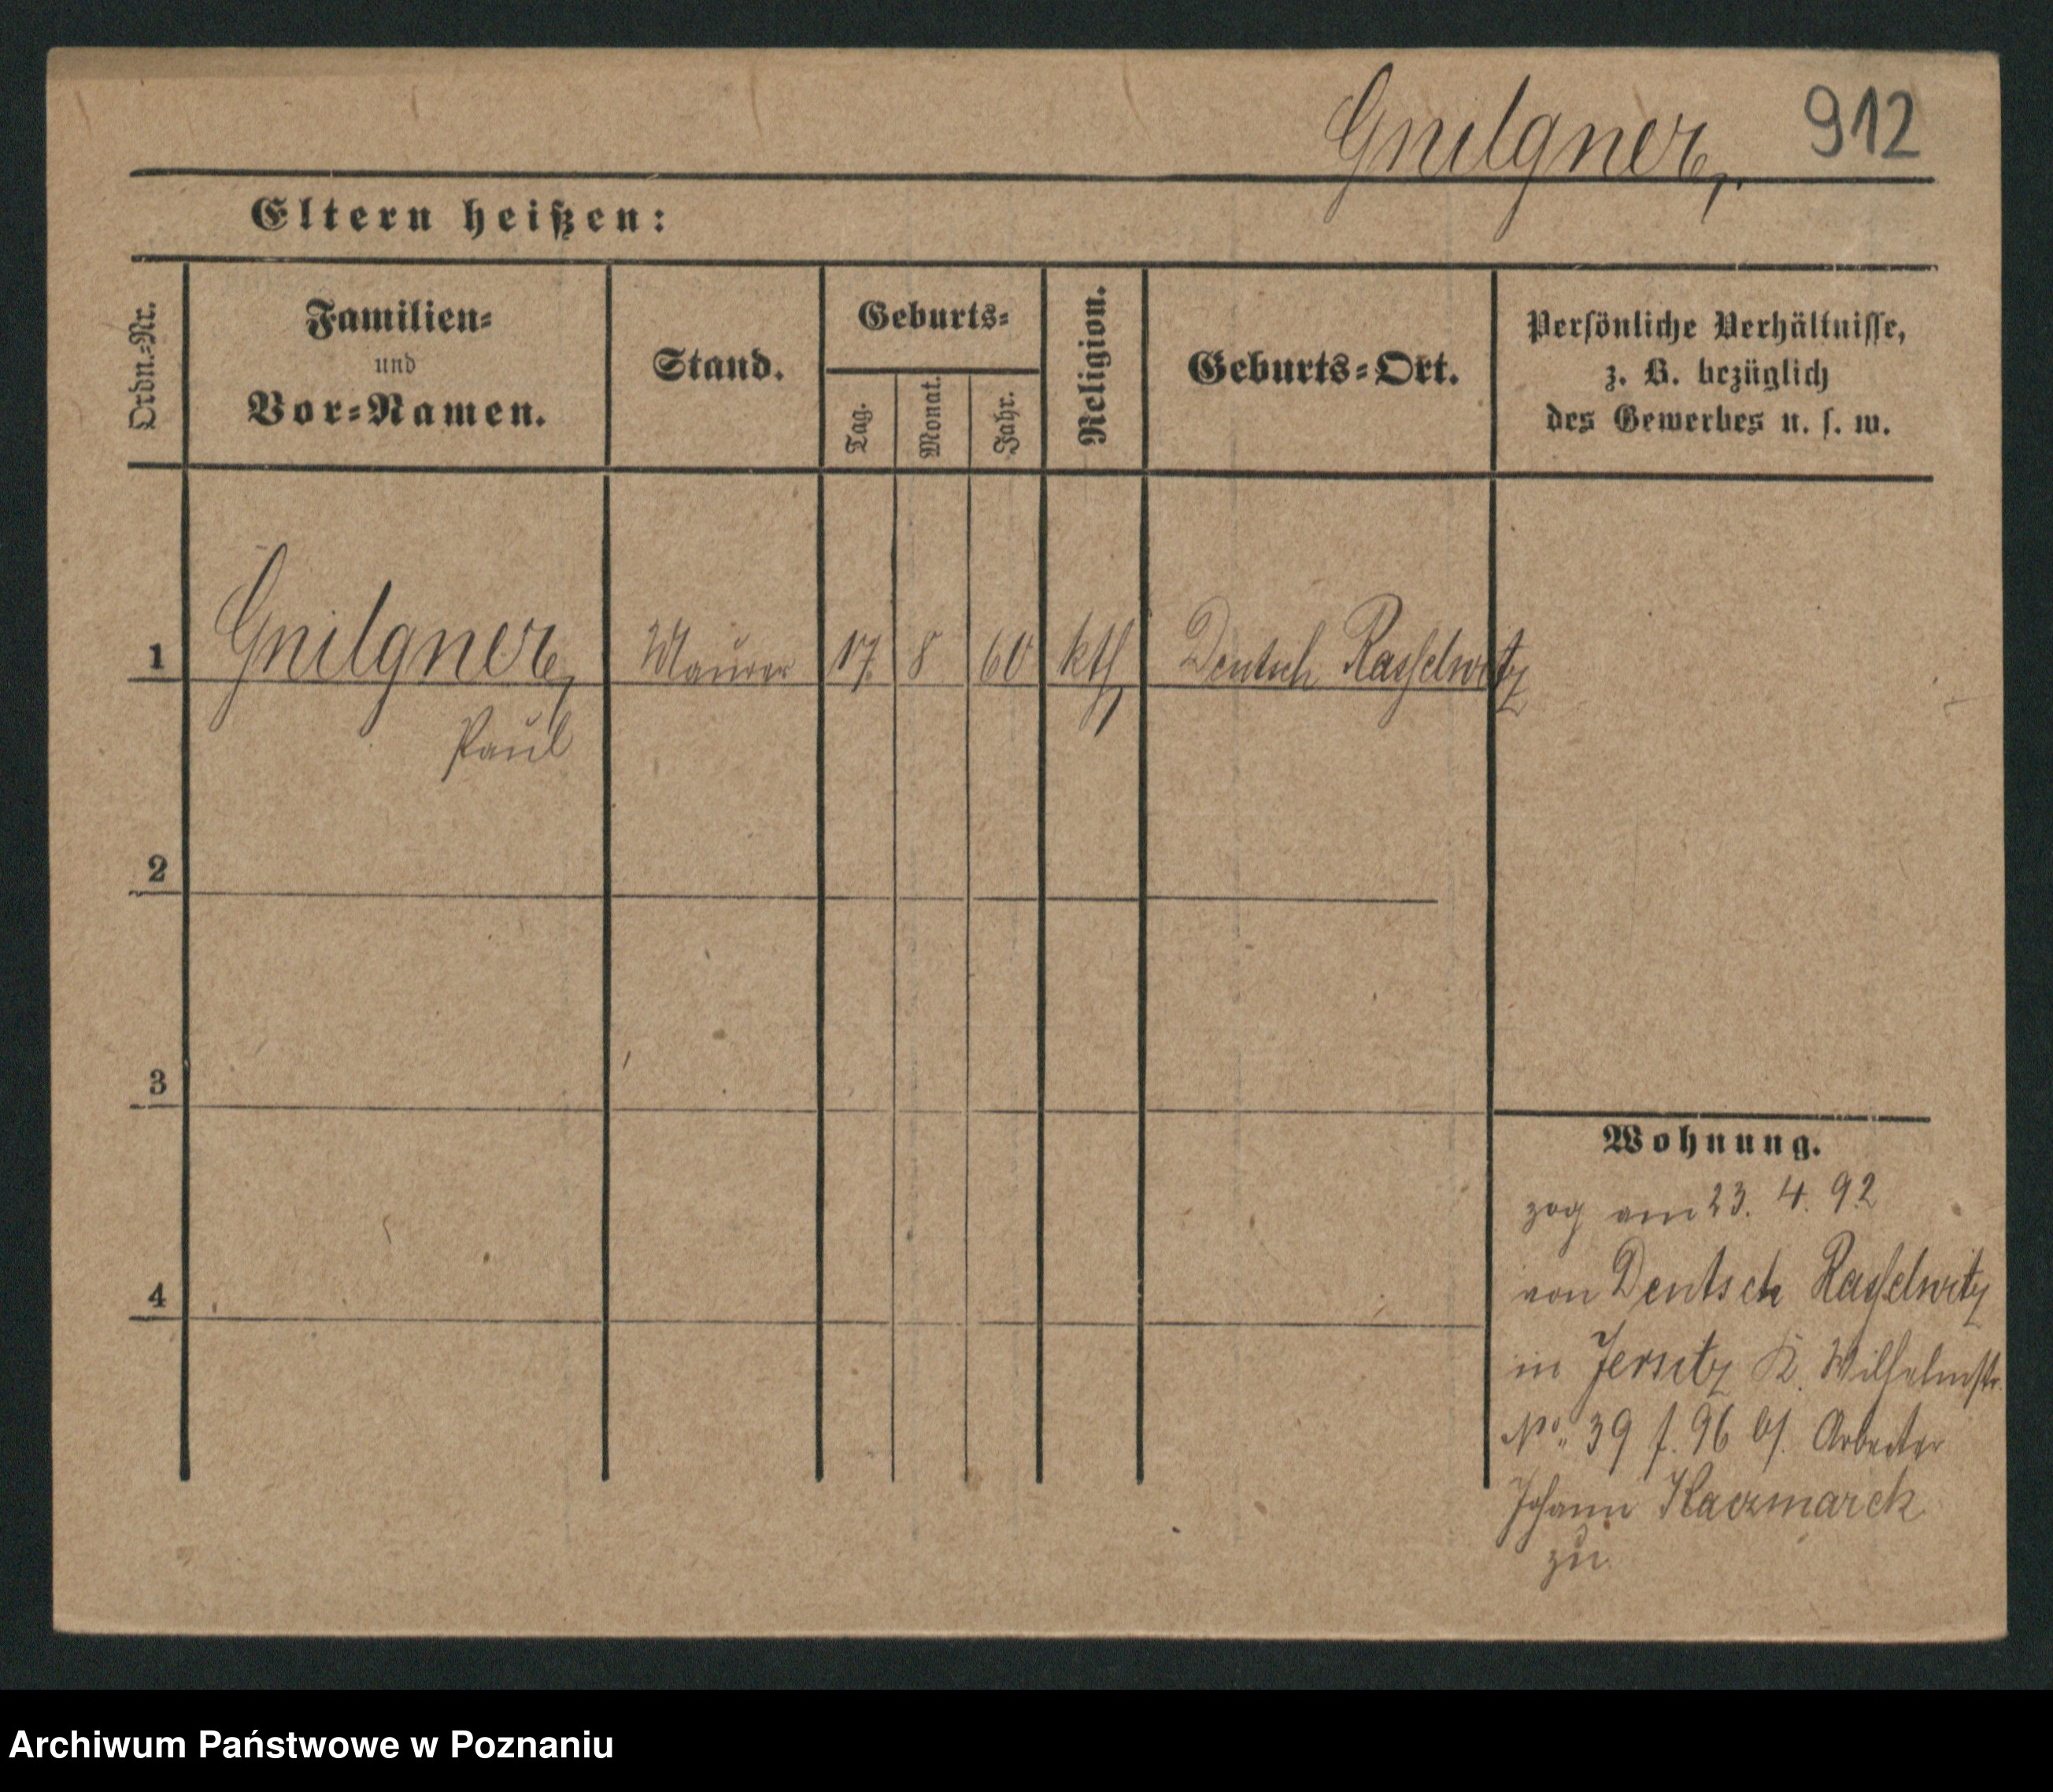 Gnilgner, 912
Eltern heißen:
Ordn.=Nr.
Familien=
und
Vor=Namen.
Stand.
Geburts=
Tag.
Monat.
Jahr.
Religion.
Geburts=Ort.
Persönliche Verhältnisse,
z. B. bezüglich
des Gewerbes u. s. w.
1 Gnilgner, Maurer 17. 8 60 kth, Deutsch Rasselwitz
Paul
2
3
4
Wohnung.
zog am 23. 4. 92
von Deutsch Rasselwitz
in Jersitz K. Wilhelmstr.
No. 39 f. 96 bei Arbeiter
Johann Kaczmarek
zu.